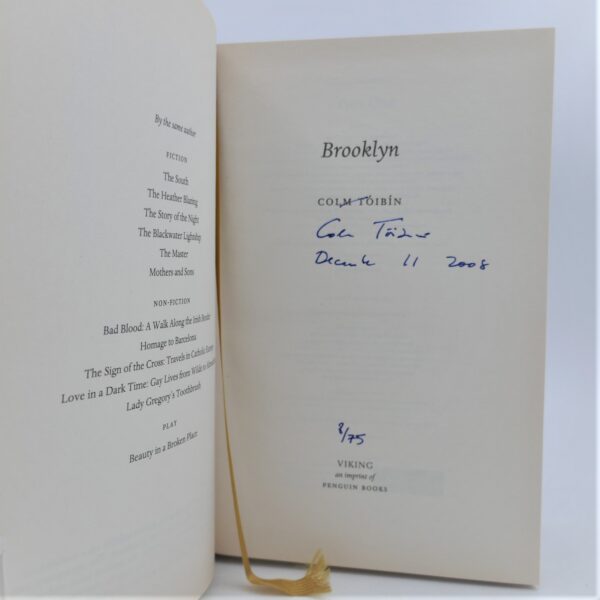 By the same author
FICTION
The South
The Heather Blazing
The Story of the Night
The Blackwater Lightship
The Master
Mothers and Sons
NON-FICTION
Bad Blood: A Walk Along the Irish Border
Homage to Barcelona
The Sign of the Cross: Travels in Catholic Europe
Love in a Dark Time: Gay Lives from Wilde to
Lady Gregory's Toothbrush
PLAY
Beauty in a Broken Place
Brooklyn
COLM TÓIBÍN
Colm Tóibín
December 11 2008
8/75
VIKING
an imprint of
PENGUIN BOOKS